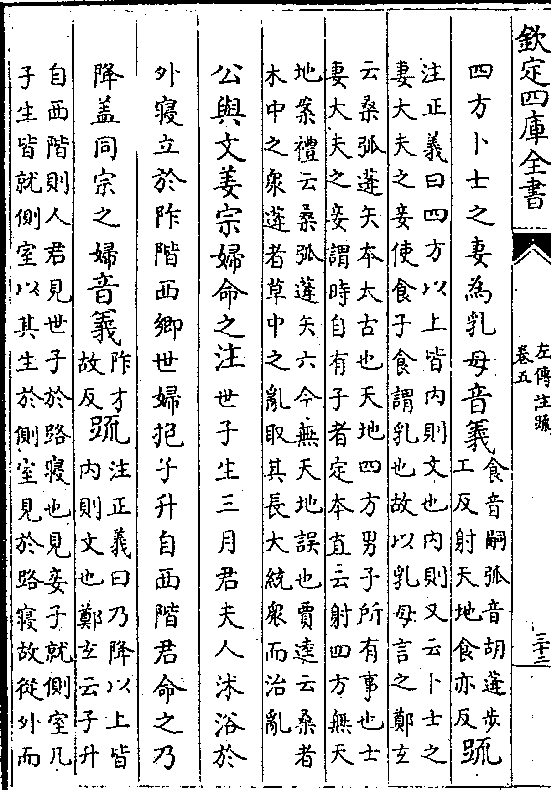 欽定四庫全書
左傳注疏
卷五
三十二
四方卜士之妻為乳母音義食音嗣弧音胡蓬步
工反射天地食亦反疏
注正義曰四方以上皆内則文也内則又云卜士之
妻大夫之妾使食子食謂乳也故以乳母言之鄭玄
云桑弧蓬矢本太古也天地四方男子所有事也士
妻大夫之妾謂時自有子者定本直云射四方無天
地案禮云桑弧蓬矢六今無天地誤也賈逵云桑者
木中之衆蓬者草中之亂取其長大統衆而治亂
公與文姜宗婦命之注世子生三月君夫人沐浴於
外寢立於阼階西鄉世婦抱子升自西階君命之乃
降盖同宗之婦音義阼才
故反疏注正義曰乃降以上皆
内則文也鄭玄云子升
自西階則人君見世子於路寢也見妾子就側室凡
子生皆就側室以其生於側室見於路寢故從外而